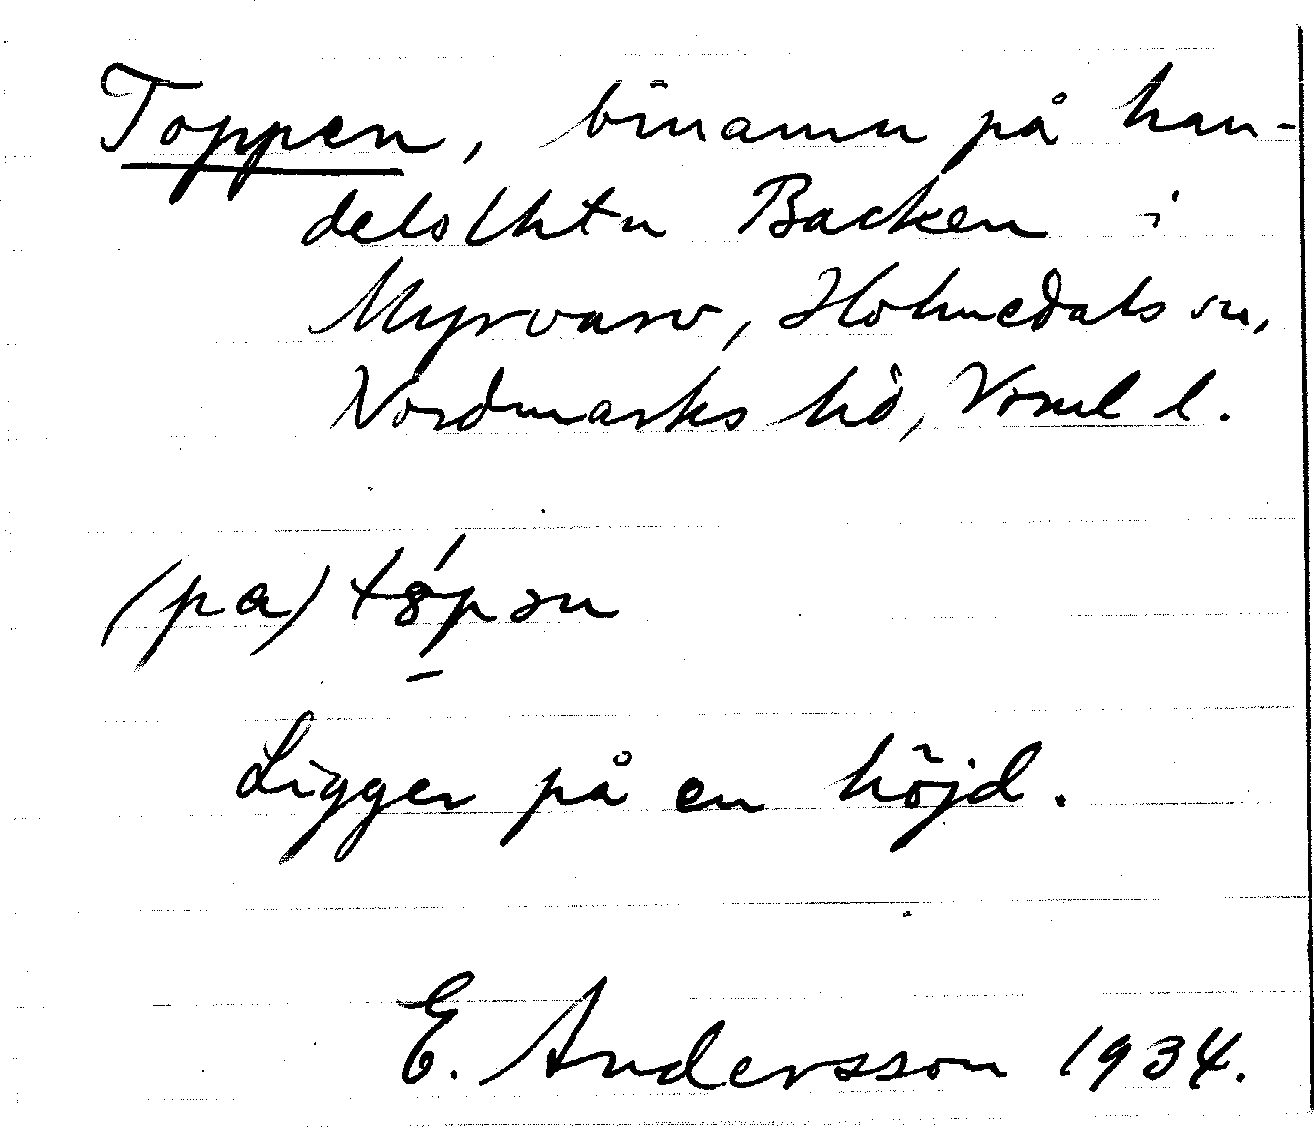 Toppen, binamn på han-
delslhtn Backen i
Myrvarv, Holmedals sn,
Nordmarks hd, Vrml l.
(pa)
Ligger på en höjd.
E. Andersson 1934.